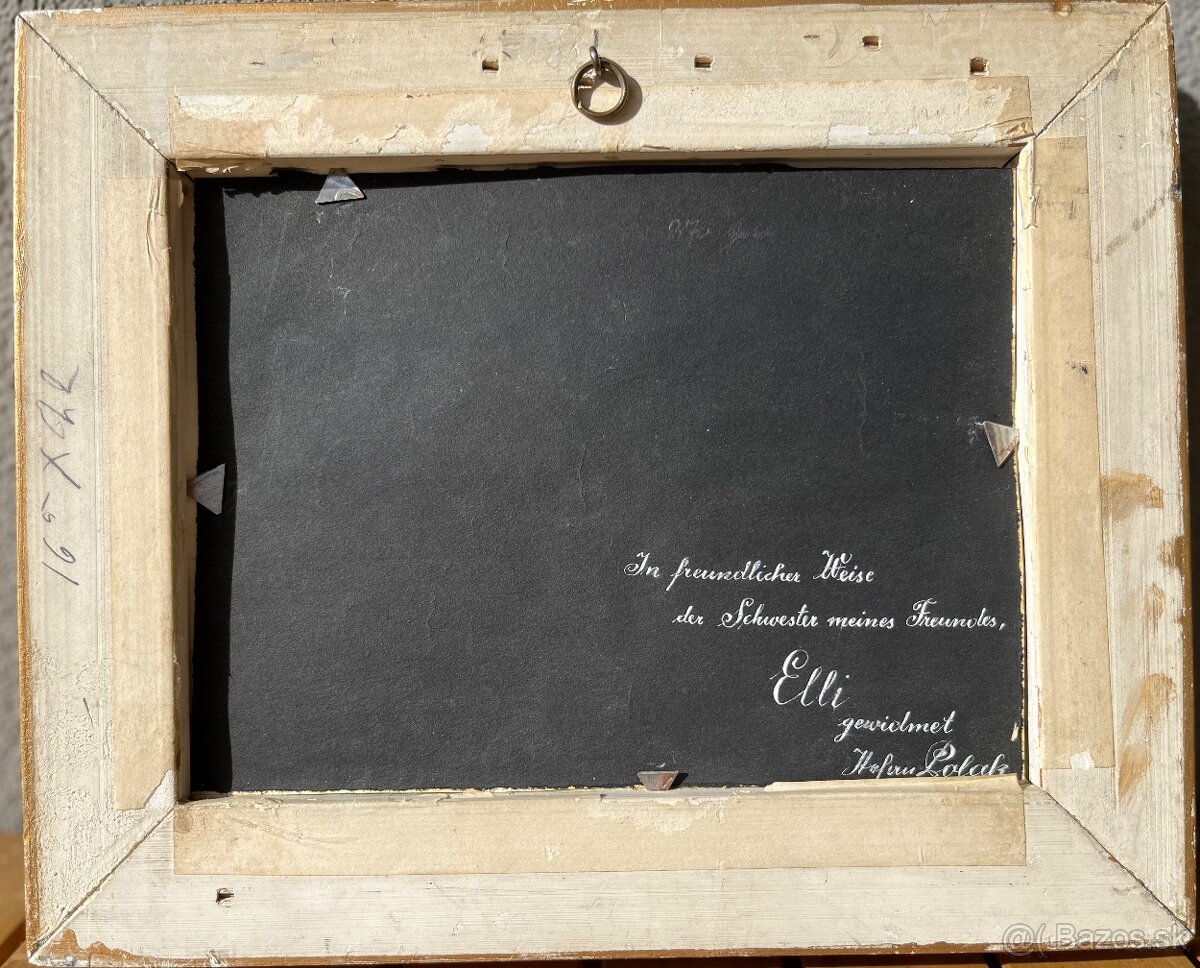 In freundlicher Weise
der Schwester meines Freundes,
Elli
gewidmet
Stefan Polak
@( Bazos.sk